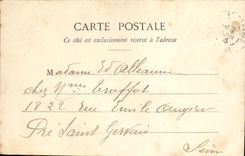 CARTE POSTALE
Ce côté est exclusivement réservé à l'adresse
Madame Ed Alleaume
chez Mme Truffot
1822 rue Emile Augier
Pré Saint Gervais
Seine